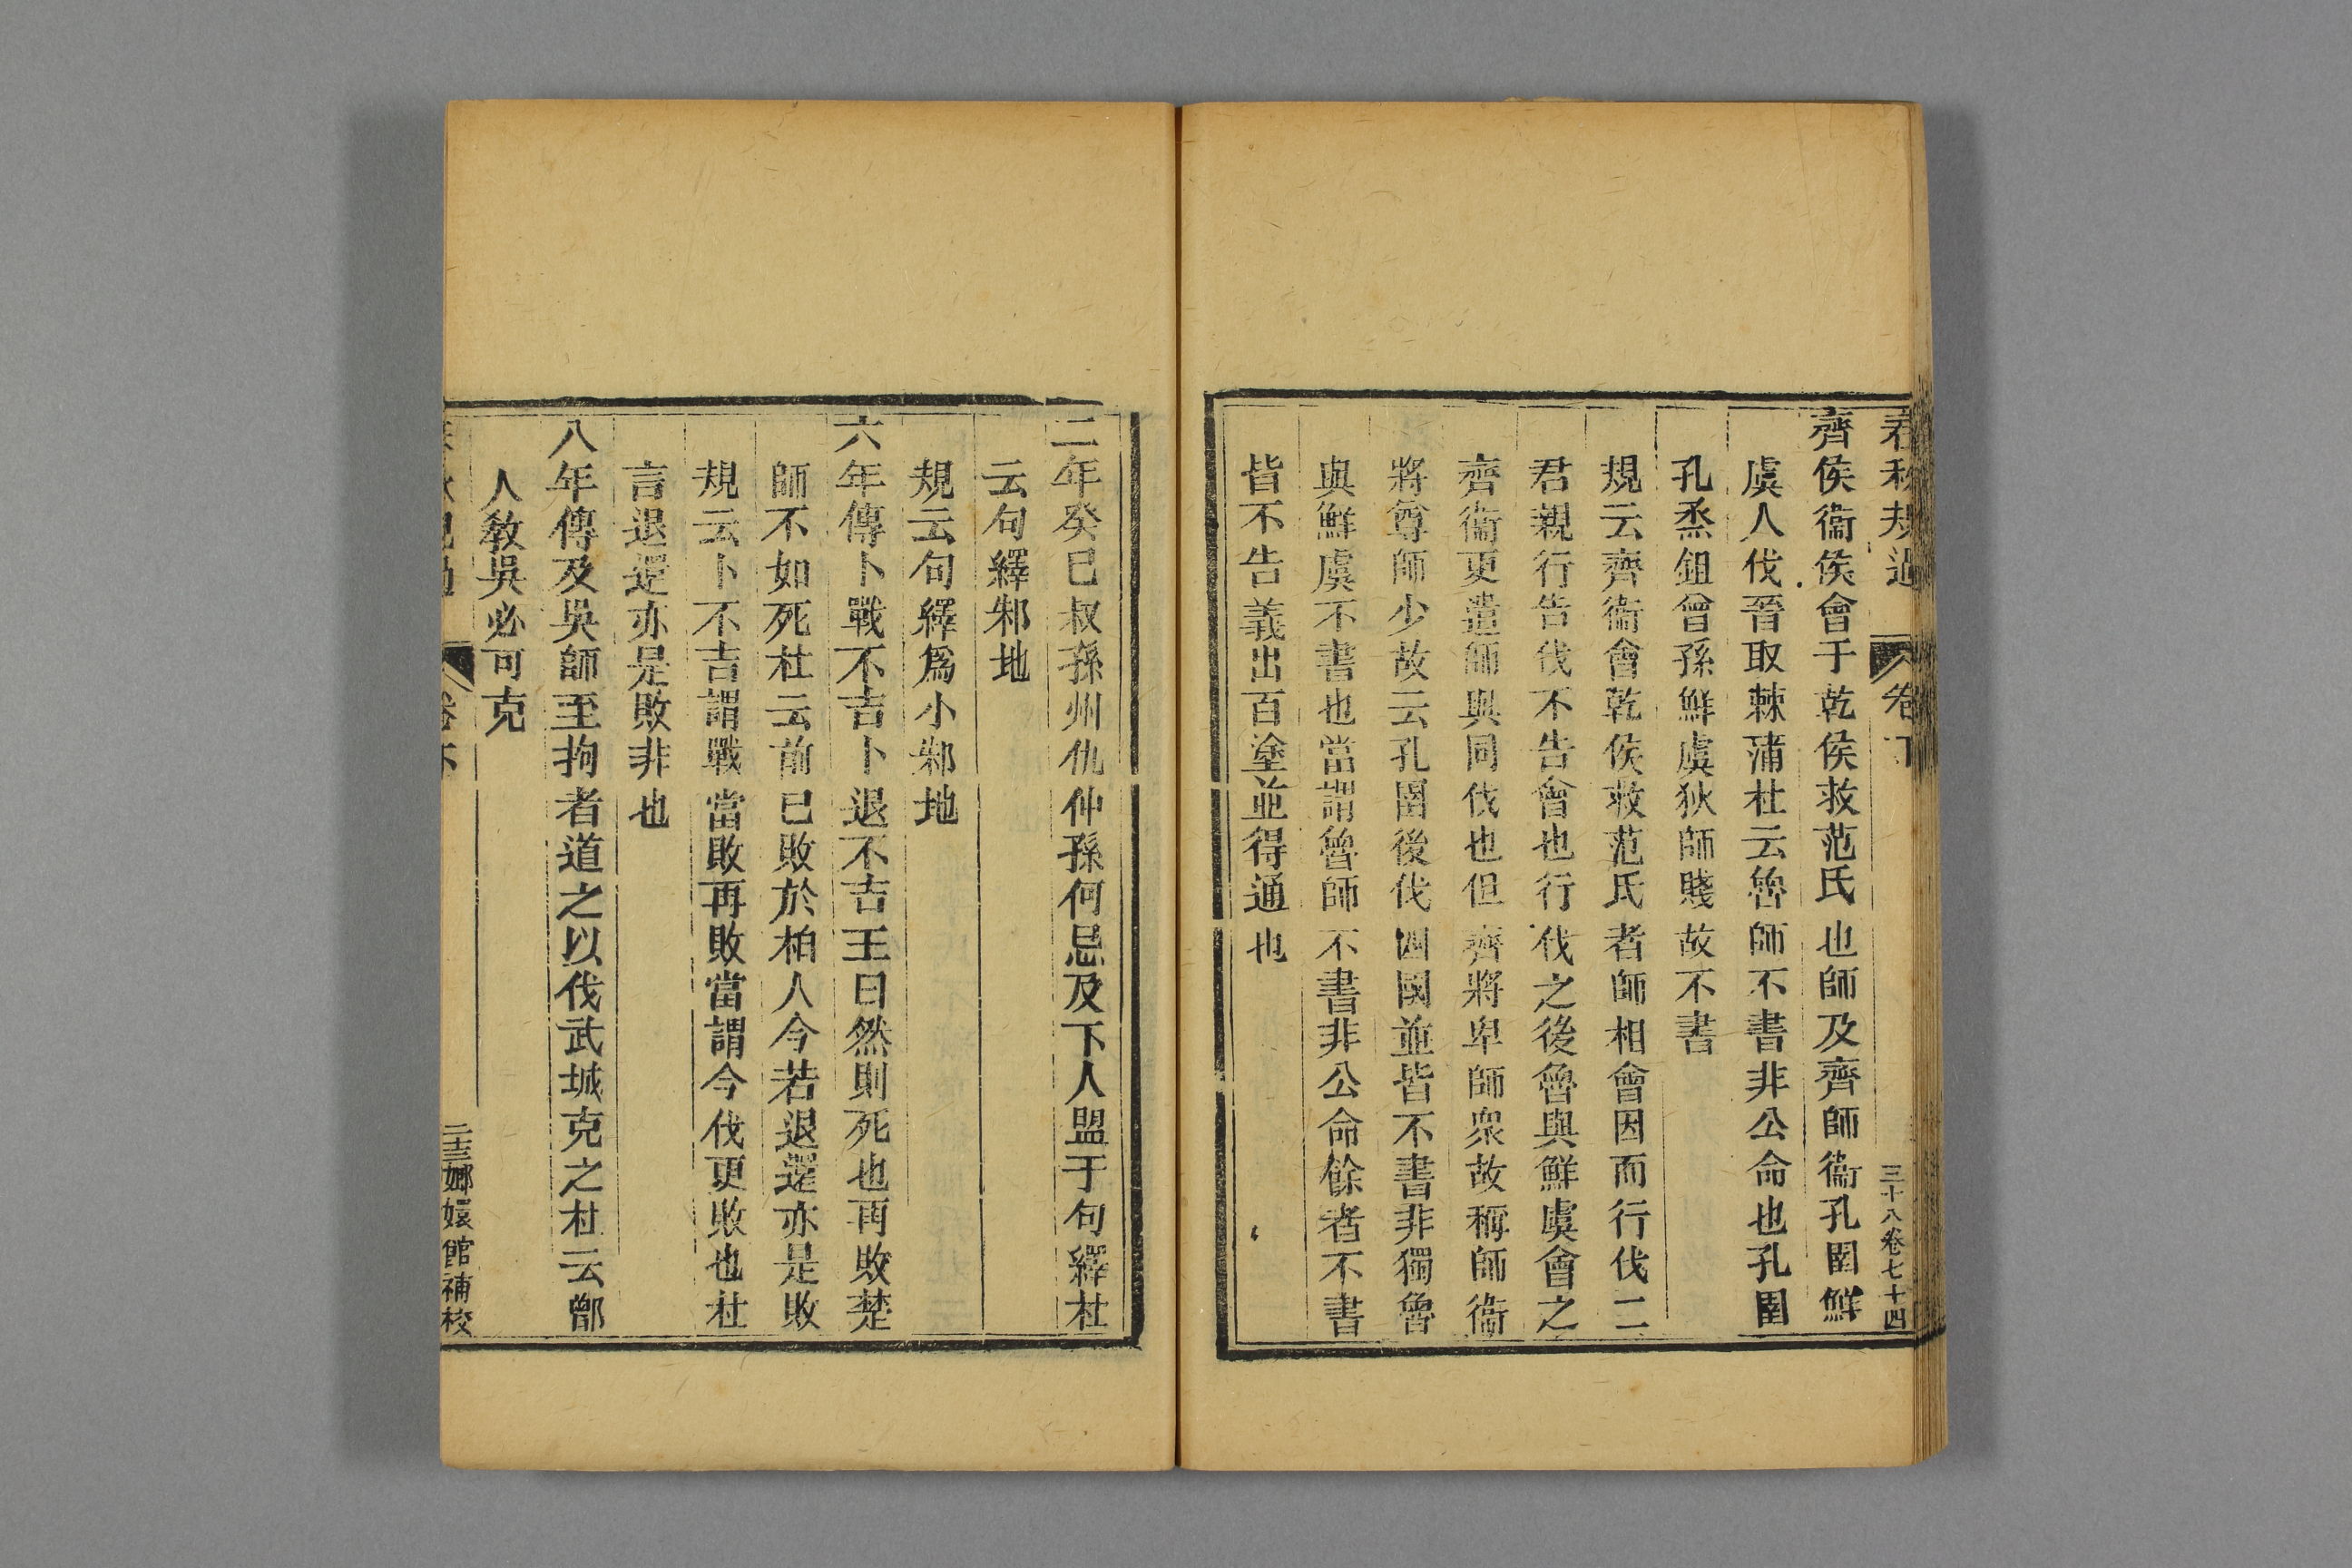 春秋規過 卷下 三十八卷七十四
齊侯衞侯會于乾侯救范氏也師及齊師衞孔圉鮮
虞人伐晉取棘蒲杜云魯師不書非公命也孔圉
孔烝鉏曾孫鮮虞狄師賤故不書
規云齊衞會乾侯救范氏者師相會因而行伐二
君親行告伐不告會也行伐之後魯與鮮虞會之
齊衞更遣師與同伐也但齊將卑師衆故稱師衞
將尊師少故云孔圉後伐四國並皆不書非獨魯
與鮮虞不書也當謂魯師不書非公命餘者不書
皆不告義出百塗並得通也
二年癸巳叔孫州仇仲孫何忌及下人盟于句繹杜
云句繹邾地
規云句繹爲小邾地
六年傳卜戰不吉卜退不吉王曰然則死也再敗楚
師不如死杜云前已敗於柏人今若退還亦是敗
規云卜不吉謂戰當敗再敗當謂今伐更敗也杜
言退還亦是敗非也
八年傳及吳師至拘者道之以伐武城克之杜云鄫
人教吳必可克
春秋規過 卷下 二十三 嫏嬛館補校